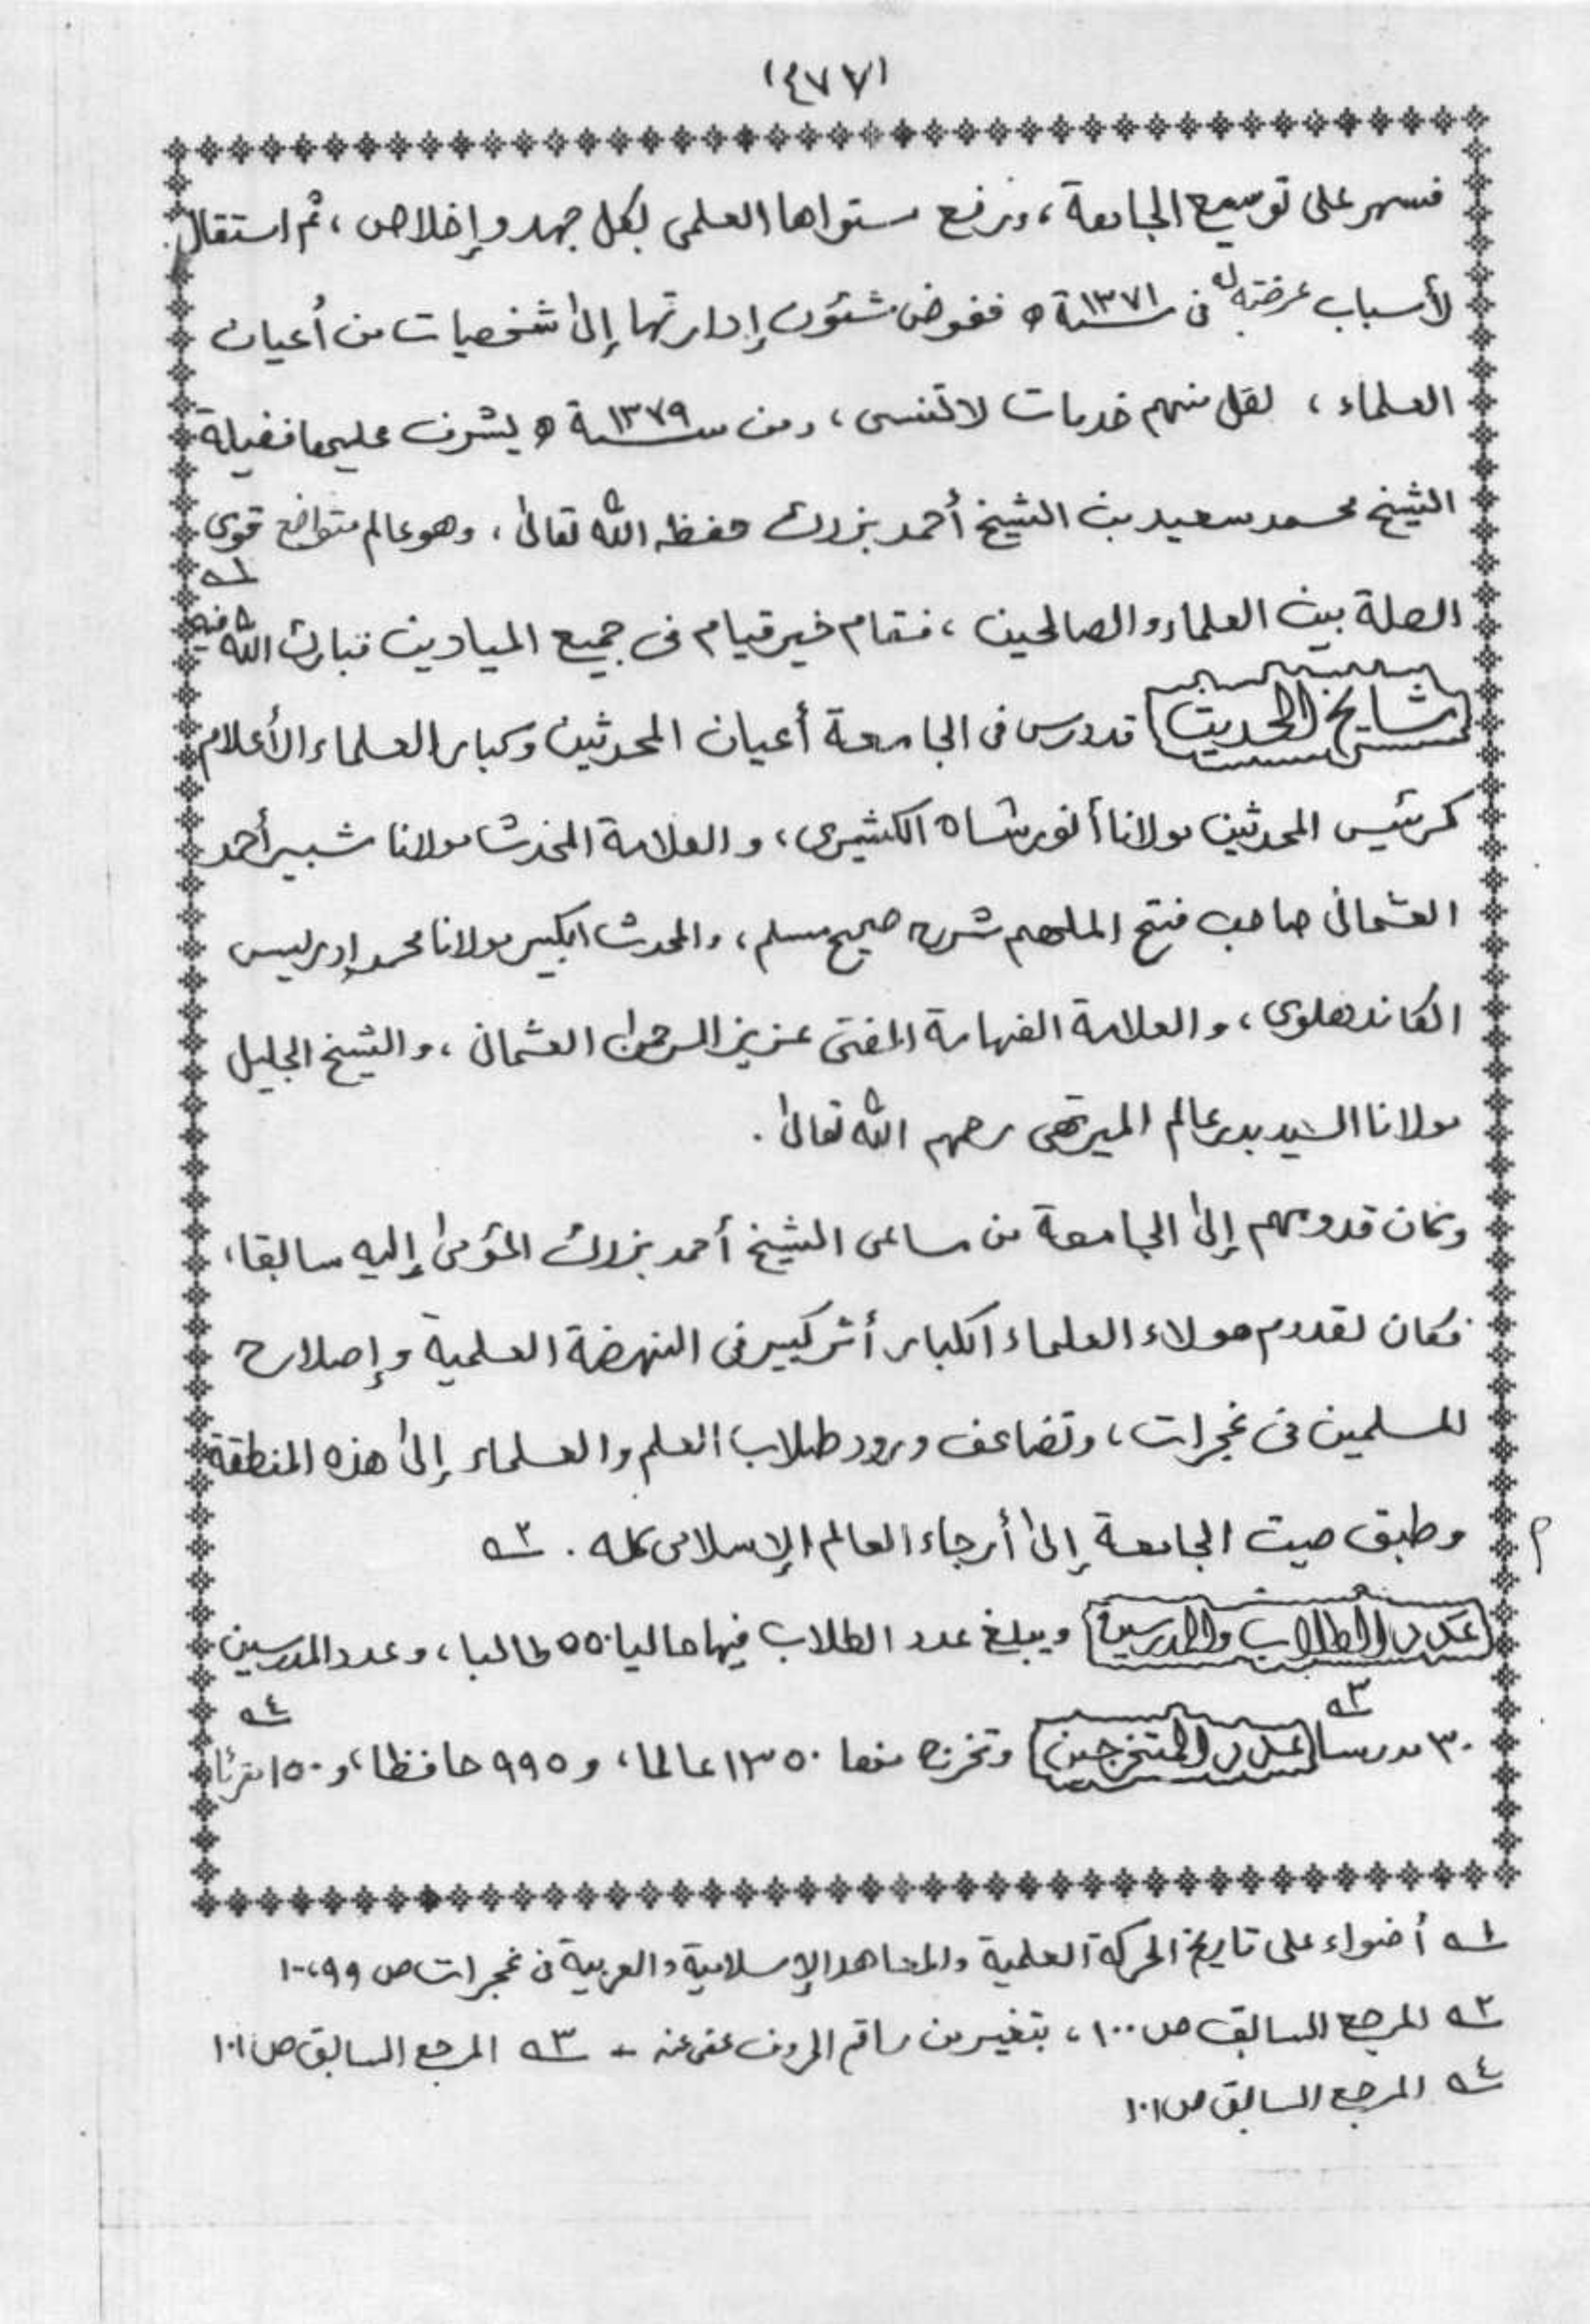 (٤٧٧)
فسهر على توسيع الجامعة، ورفع مستواها العلمى بكل جهد وإخلاص، ثم استقال
لأسباب عرضت له فى سنة ١٣٧١ ه ففوض شئون إدارتها إلى شخصيات من أعيان
العلماء، لكل منهم خدمات لا تنسى، ومن سنة ١٣٧٩ ه يشرف عليها فضيلة
الشيخ محمد سعيد بن الشيخ أحمد بزرك حفظه الله تعالى، وهو عالم متواضع قوى
الصلة بين العلماء والصالحين، فقام خير قيام فى جميع الميادين فبارك الله فيه ١ــه
مشايخ الحديث قد درس فى الجامعة أعيان المحدثين وكبار العلماء الأعلام
كرئيس المحدثين مولانا أنور شاه الكشميرى، والعلامة المحدث مولانا شبير أحمد
العثمانى صاحب فتح الملهم شرح صحيح مسلم، والمحدث الكبير مولانا محمد إدريس
الكاندهلوى، والعلامة الفهامة المفتى عزيز الرحمن العثمانى، والشيخ الجليل
مولانا السيد بدر عالم الميرتهى رحمهم الله تعالى.
وكان قدومهم إلى الجامعة من مساعى الشيخ أحمد بزرك المؤمى إليه سابقا،
فكان لقدوم هولاء العلماء الكبار أثر كبير فى النهضة العلمية وإصلاح
المسلمين فى غجرات، وتضاعف ورود طلاب العلم والعلماء إلى هذه المنطقة
وطبق صيت الجامعة إلى أرجاء العالم الإسلامى كله. ٢ــه
م
عدد الطلاب والمدرسين ويبلغ عدد الطلاب فيها حاليا ٥٥٠ طالبا، وعدد المدرسين
٣٠ مدرسا ٣ــه عدد المتخرجين وتخرج منها ١٣٥٠ عالما، و ٩٩٥ حافظا، و ١٥٠ مقرئا ٤ــه
١ــه أضواء على تاريخ الحركة العلمية والمعاهد الإسلامية والعربية فى غجرات ص ٩٩، ١٠٠
٢ــه المرجع السابق ص ١٠٠، بتغيير من راقم الحروف عفى عنه - ٣ــه المرجع السابق ص ١٠١
٤ــه المرجع السابق ص ١٠١